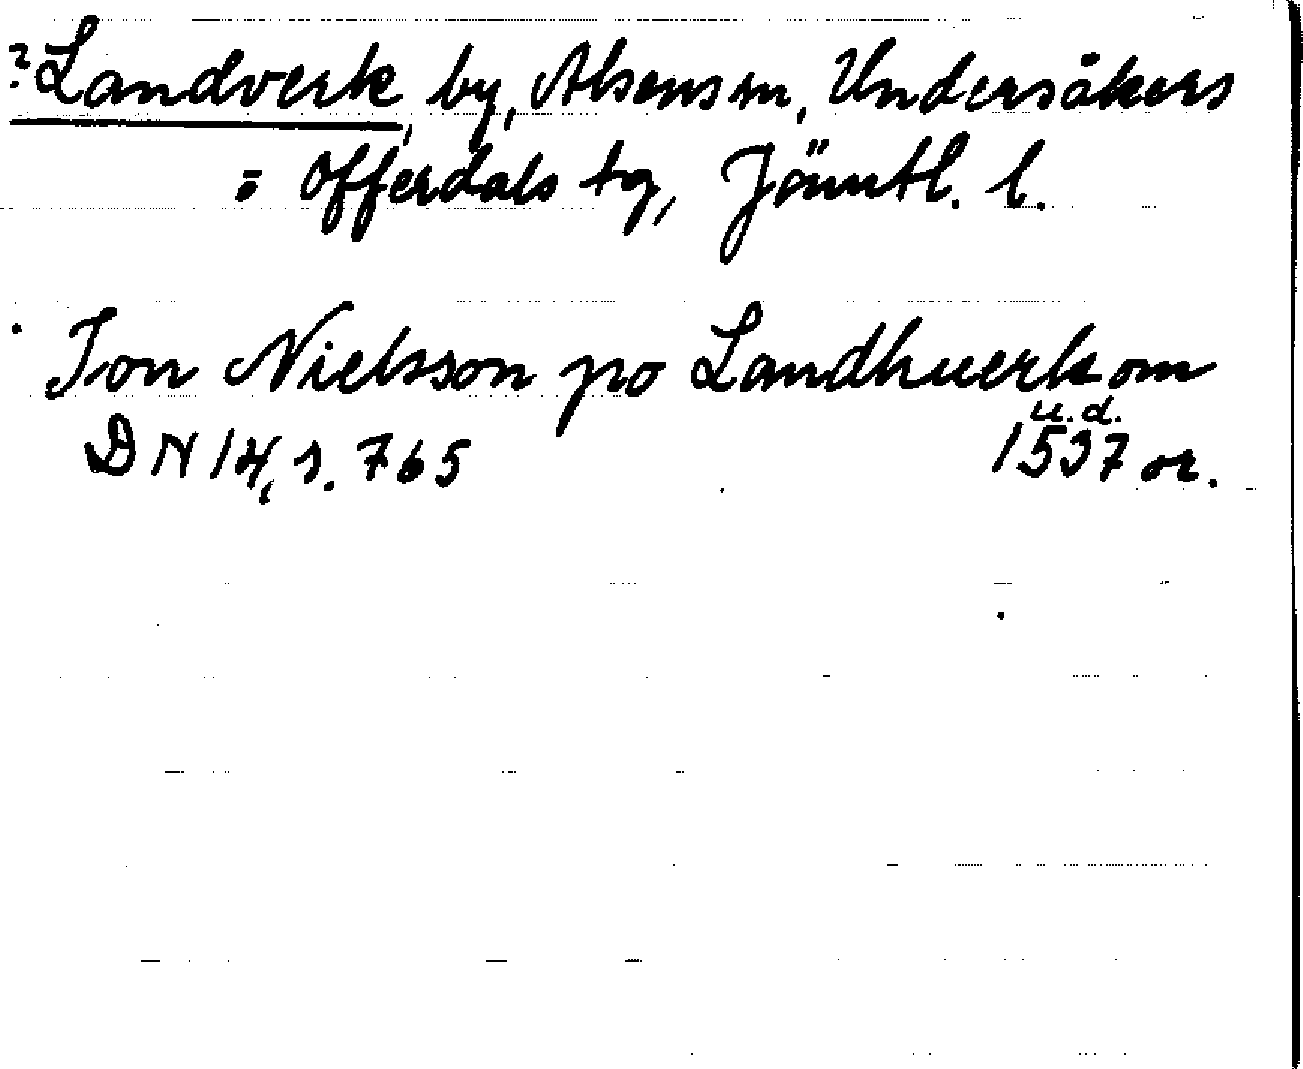 ? Landverk, by, Alsens sn, Undersåkers
= Offerdals tg, Jämtl. l.
Jon Nielsson po Landhuerkom
u.d.
DN 14, s. 765 1537 or.